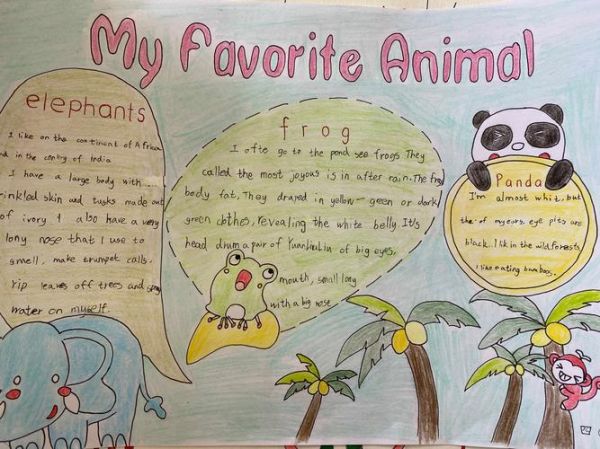 My Favorite Animal
elephants
I like on the continent of Africa
nd in the contry of India
I have a large body with
inkled skin and tusks made out
of ivory. I also have a very
lony nose that I use to
smell, make trumpet calls.
rip leaves off trees and spray
water on myself.
frog
I ofte go to the pond see frogs. They
called the most joyous is in after rain. The frog
body fat. They draped in yellow- green or dark
green clothes, revealing the white belly It/s
head drum a pair of of big eyes,
mouth, small long
with a big nose
Panda
I'm almost whit, but
the of my ears, eye pits are
black. I lik in the wild forests
I like eating bamboo..